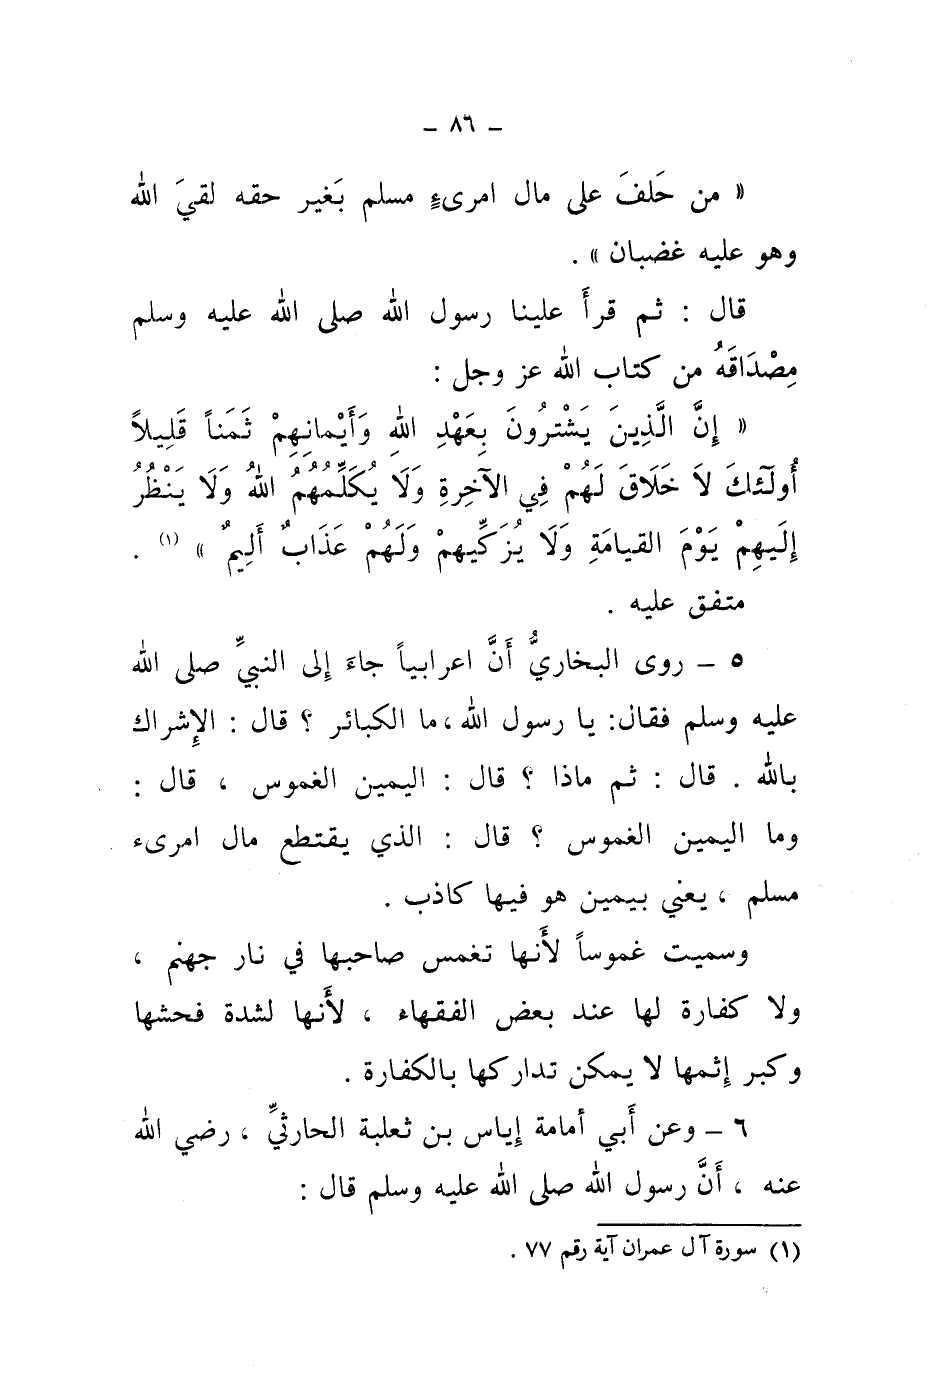 – ٨٦ –
« من حَلفَ على مال امرىءٍ مسلم بَغير حقه لقيَ الله
وهو عليه غضبان » .
قال : ثم قرأَ علينا رسول الله صلى الله عليه وسلم
مِصْدَاقَهُ من كتاب الله عز وجل :
« إِنَّ الَّذِينَ يَشْتَرُونَ بِعَهْدِ اللهِ وَأَيْمانِهِمْ ثَمَناً قَلِيلاً
أُولَٰئكَ لاَ خَلَاقَ لَهُمْ فِي الآخِرةِ وَلَا يُكَلِّمُهُمُ اللهُ وَلَا يَنْظُرُ
إِلَيهِمْ يَوْمَ القيامَةِ وَلَا يُزَكِّيهمْ وَلَهُمْ عَذَابٌ أَلِيمٌ » (١) .
متفق عليه .
٥ – روى البخاريُّ أَنَّ اعرابياً جاءَ إِلى النبيِّ صلى الله
عليه وسلم فقال: يا رسول الله ، ما الكبائر ؟ قال : الإِشراك
بالله . قال : ثم ماذا ؟ قال : اليمين الغموس ، قال :
وما اليمين الغموس ؟ قال : الذي يقتطع مال امرىء
مسلم ، يعني بيمين هو فيها كاذب .
وسميت غموساً لأَنها تغمس صاحبها في نار جهنم ،
ولا كفارة لها عند بعض الفقهاء ، لأَنها لشدة فحشها
وكبر إِثمها لا يمكن تداركها بالكفارة .
٦ – وعن أَبي أُمامة إِياس بن ثعلبة الحارثيِّ ، رضي الله
عنه ، أَنَّ رسول الله صلى الله عليه وسلم قال :
(١) سورة آل عمران آية رقم ٧٧ .